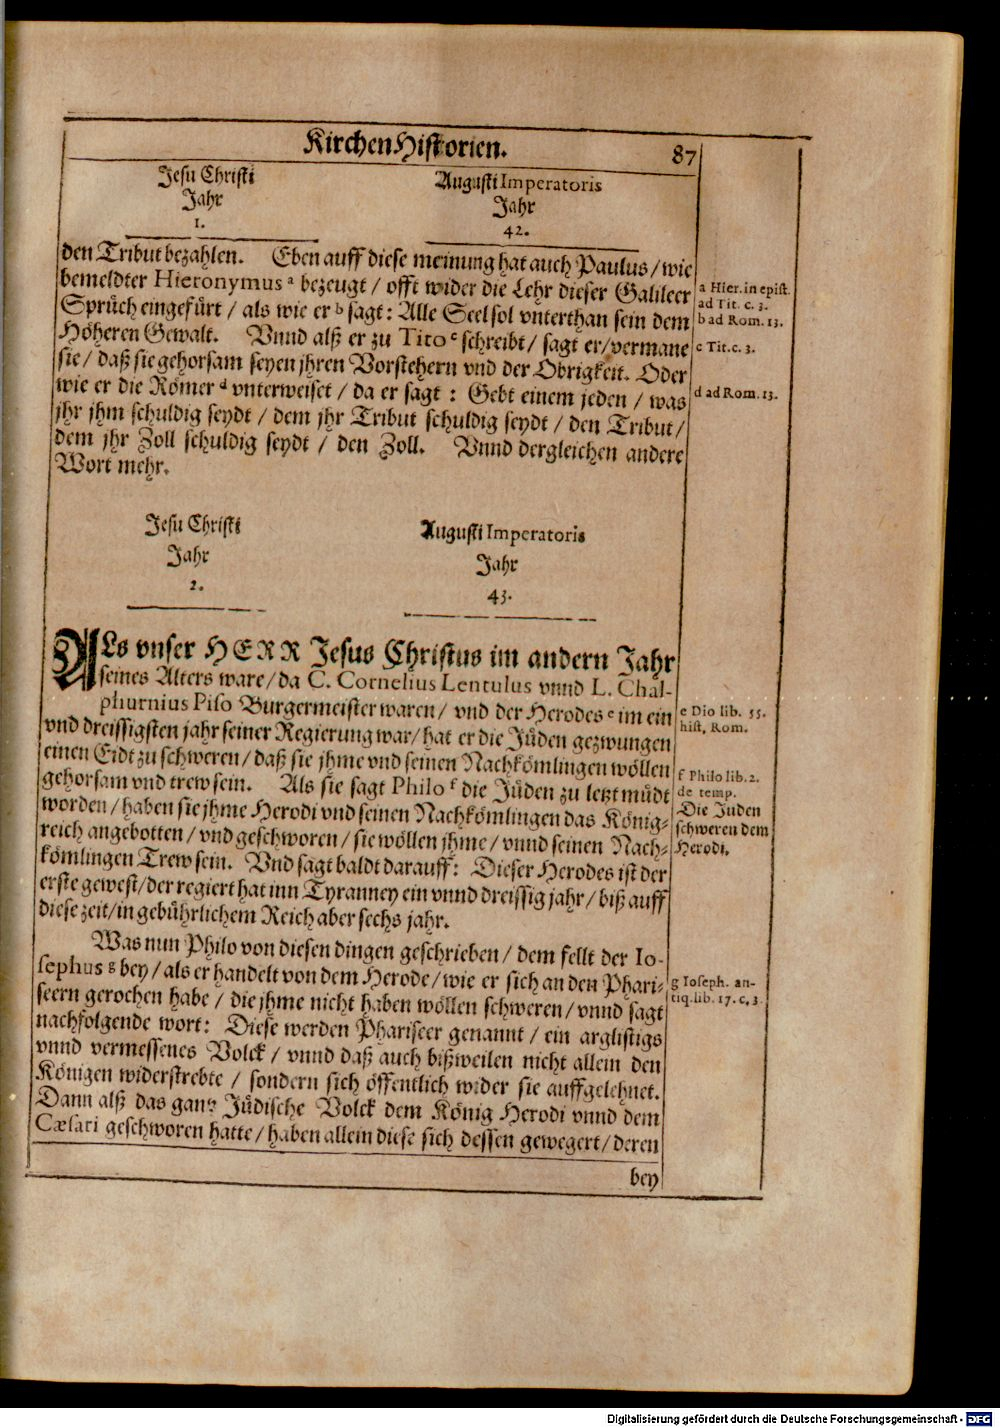 KirchenHistorien.
87
Jesu Christi
Jahr
1.
Augusti Imperatoris
Jahr
42.
den Tribut bezahlen. Eben auff diese meinung hat auch Paulus / wie
bemeldter Hieronymus a bezeugt / offt wider die Lehr dieser Galileer
Sprüch eingefürt / als wie er b sagt: Alle Seel sol vnterthan sein dem
Höheren Gewalt. Vnnd alß er zu Tito c schreibt / sagt er / vermane
sie / daß sie gehorsam seyen jhren Vorstehern vnd der Obrigkeit. Oder
wie er die Römer d vnterweiset / da er sagt : Gebt einem jeden / was
jhr jhm schuldig seydt / dem jhr Tribut schuldig seydt / den Tribut /
dem jhr Zoll schuldig seydt / den Zoll. Vnnd dergleichen andere
Wort mehr.
a Hier. in epist.
ad Tit. c. 3.
b ad Rom. 13.
c Tit. c. 3.
d ad Rom. 13.
Jesu Christi
Jahr
2.
Augusti Imperatoris
Jahr
43.
ALs vnser HERR Jesus Christus im andern Jahr
seines Alters ware / da C. Cornelius Lentulus vnnd L. Chal-
phurnius Piso Burgermeister waren / vnd der Herodes e im ein
vnd dreissigsten jahr seiner Regierung war / hat er die Jüden gezwungen
einen Eidt zu schweren / daß sie jhme vnd seinen Nachkömlingen wöllen
gehorsam vnd trew sein. Als sie sagt Philo f die Jüden zu letzt müdt
worden / haben sie jhme Herodi vnd seinen Nachkömlingen das König-
reich angebotten / vnd geschworen / sie wöllen jhme / vnnd seinen Nach-
kömlingen Trew sein. Vnd sagt baldt darauff: Dieser Herodes ist der
erste gewest / der regiert hat inn Tyranney ein vnnd dreissig jahr / biß auff
diese zeit / in gebührlichem Reich aber sechs jahr.
e Dio lib. 55.
hist. Rom.
f Philo lib. 2.
de temp.
Die Juden
schweren dem
Herodi.
Was nun Philo von diesen dingen geschrieben / dem fellt der Io-
sephus g bey / als er handelt von dem Herode / wie er sich an den Phari-
seern gerochen habe / die jhme nicht haben wöllen schweren / vnnd sagt
nachfolgende wort: Diese werden Phariseer genannt / ein arglistigs
vnnd vermessenes Volck / vnnd daß auch bißweilen nicht allein den
Königen widerstrebte / sondern sich öffentlich wider sie auffgelehnet.
Dann alß das gantz Jüdische Volck dem König Herodi vnnd dem
Cæsari geschworen hatte / haben allein diese sich dessen gewegert / deren
g Ioseph. an-
tiq. lib. 17. c. 3.
bey
Digitalisierung gefördert durch die Deutsche Forschungsgemeinschaft - DFG